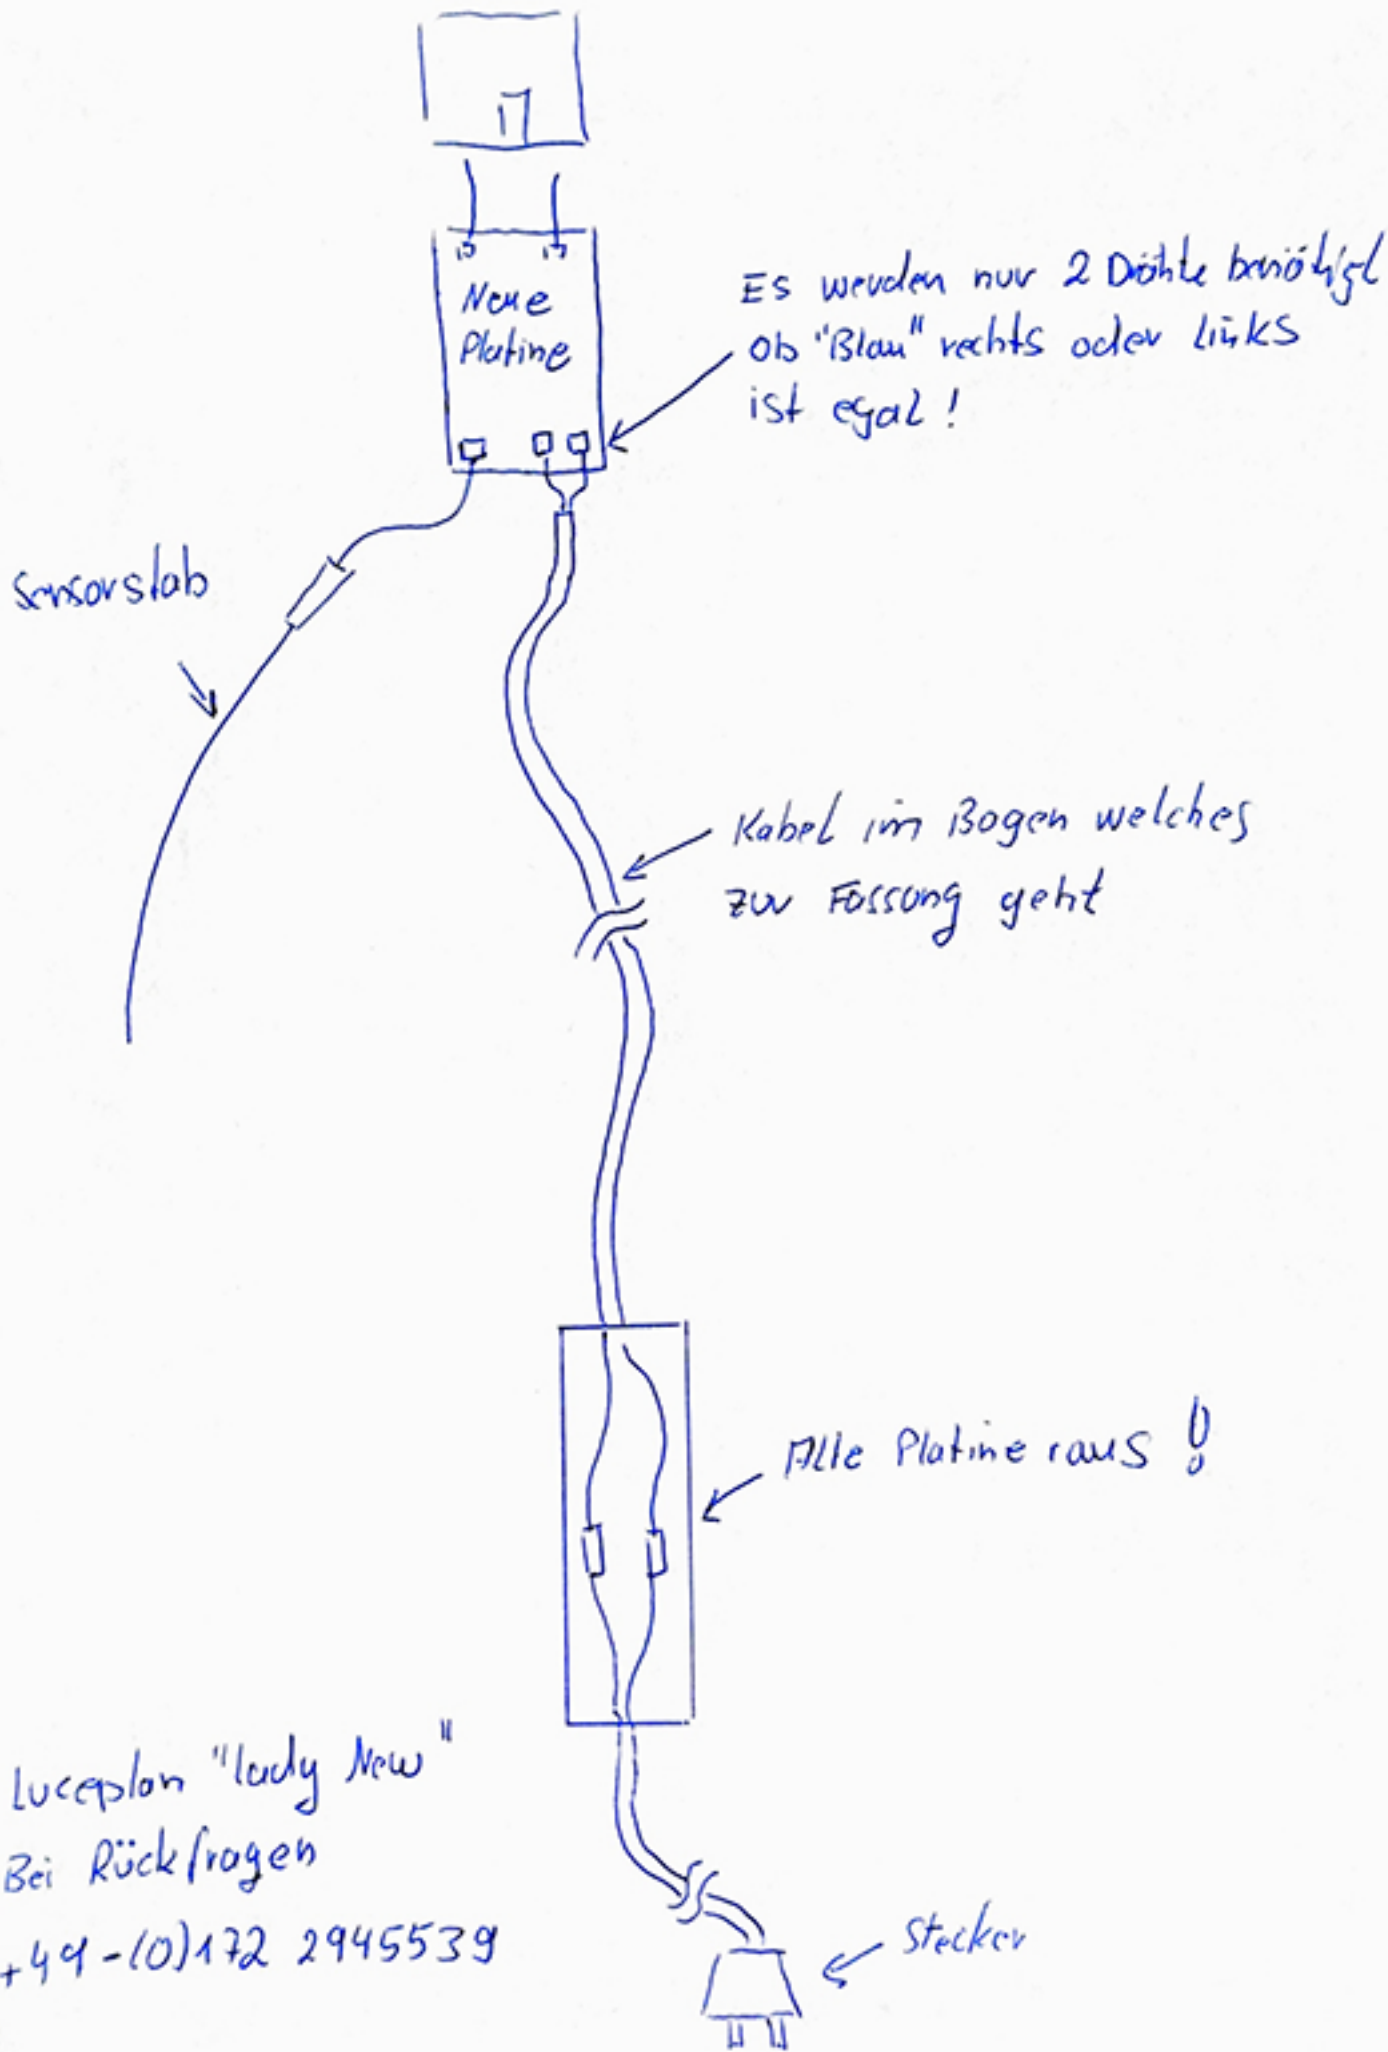 Neue
Platine
Es werden nur 2 Drähte benötigt
ob "Blau" rechts oder links
ist egal!
Sensorstab
Kabel im Bogen welches
zur Fassung geht
Alte Platine raus!
Luceplan "lady New"
Bei Rückfragen
+49-(0)172 2945539
Stecker